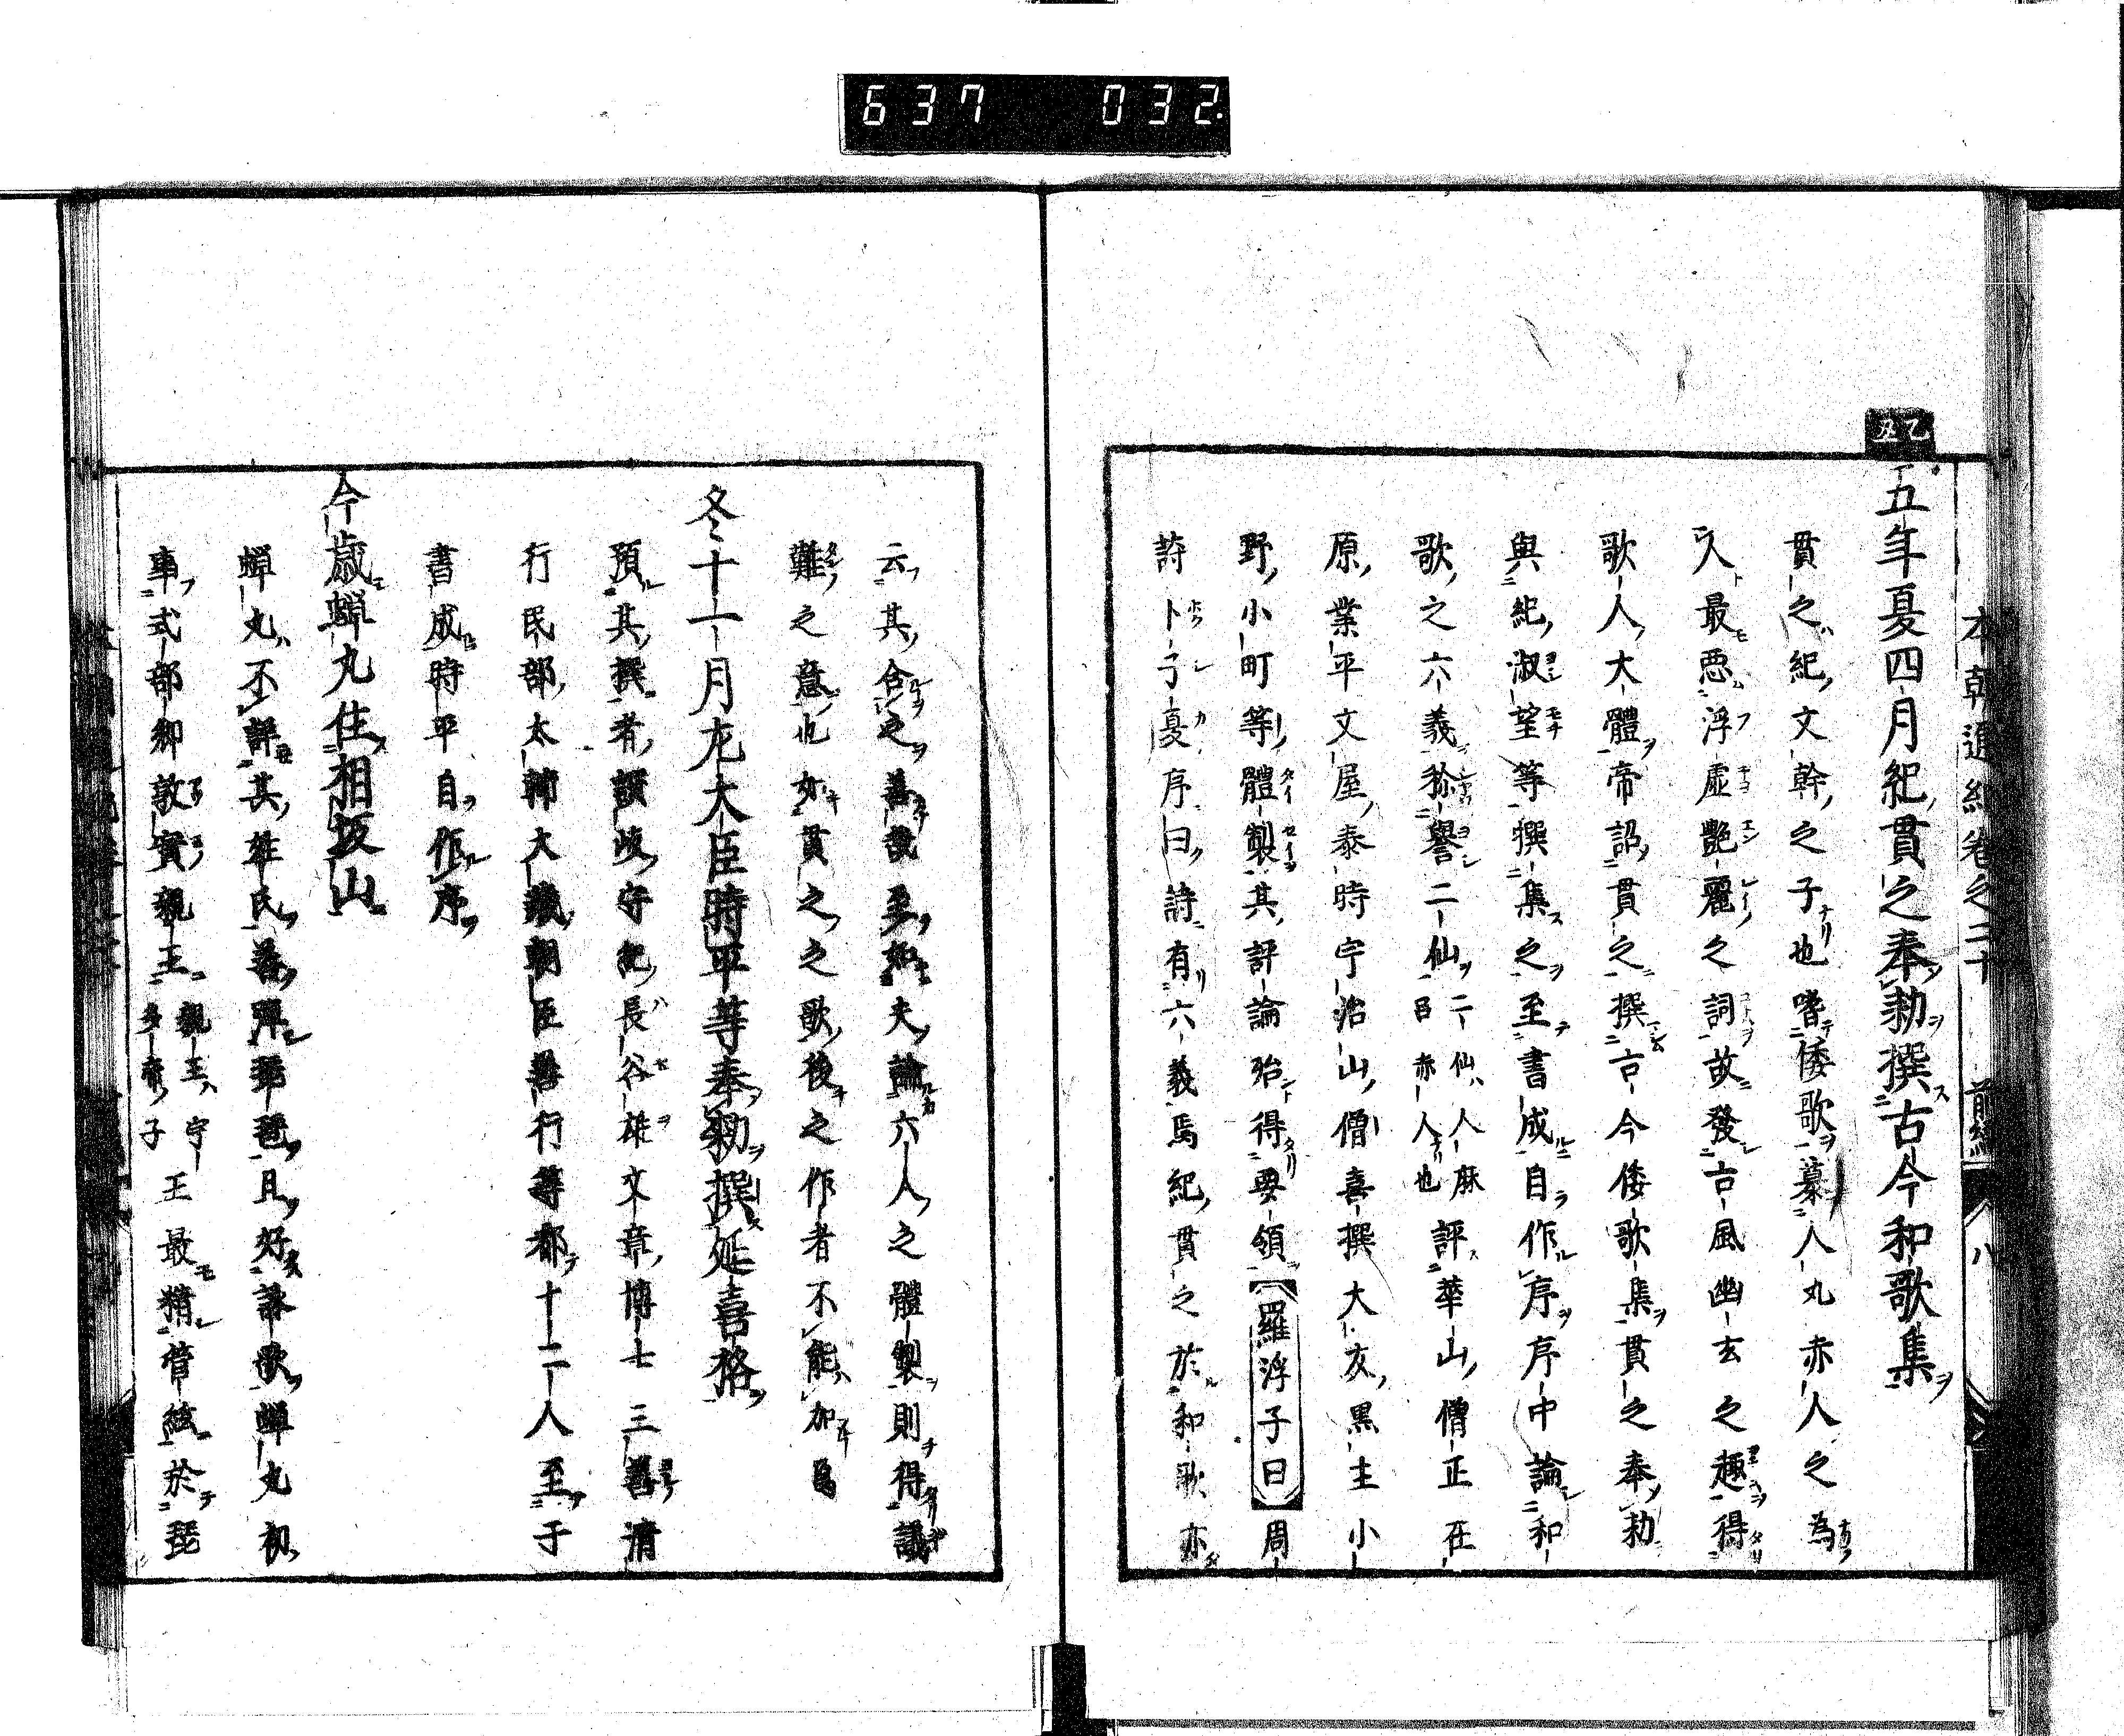 637 032
本朝通紀卷之二十 前編 八
乙丑
五年夏四月紀貫之奉勅撰古今和歌集
貫之紀文幹之子也嗜倭歌慕人丸赤人之為
人最惡浮虛艷麗之詞故發言風幽玄之趣得
歌人大體帝詔貫之撰古今倭歌集貫之奉勅
與紀淑望等撰集之至書成自作序序中論和
歌之六義稱譽二仙二仙人麻呂赤人也評華山僧正在
原業平文屋泰時宇治山僧喜撰大友黒主小
野小町等體製其評論殆得要領羅浮子曰周
詩卜子夏序曰詩有六義焉紀貫之於和歌亦
云其合之善哉至如夫論六人之體製則得議
難之意也如貫之之歌後之作者不能加焉
冬十一月左大臣時平等奉勅撰延喜格
預其撰者讃岐守紀長谷雄文章博士三善清
行民部太輔大藏朝臣善行等都十二人至于
書成時平自作序
今歳蝉丸住相坂山
蝉丸不詳其姓氏善彈琵琶且好詠歌蝉丸初
事式部卿敦實親王親王宇多帝子王最精管絃於琵